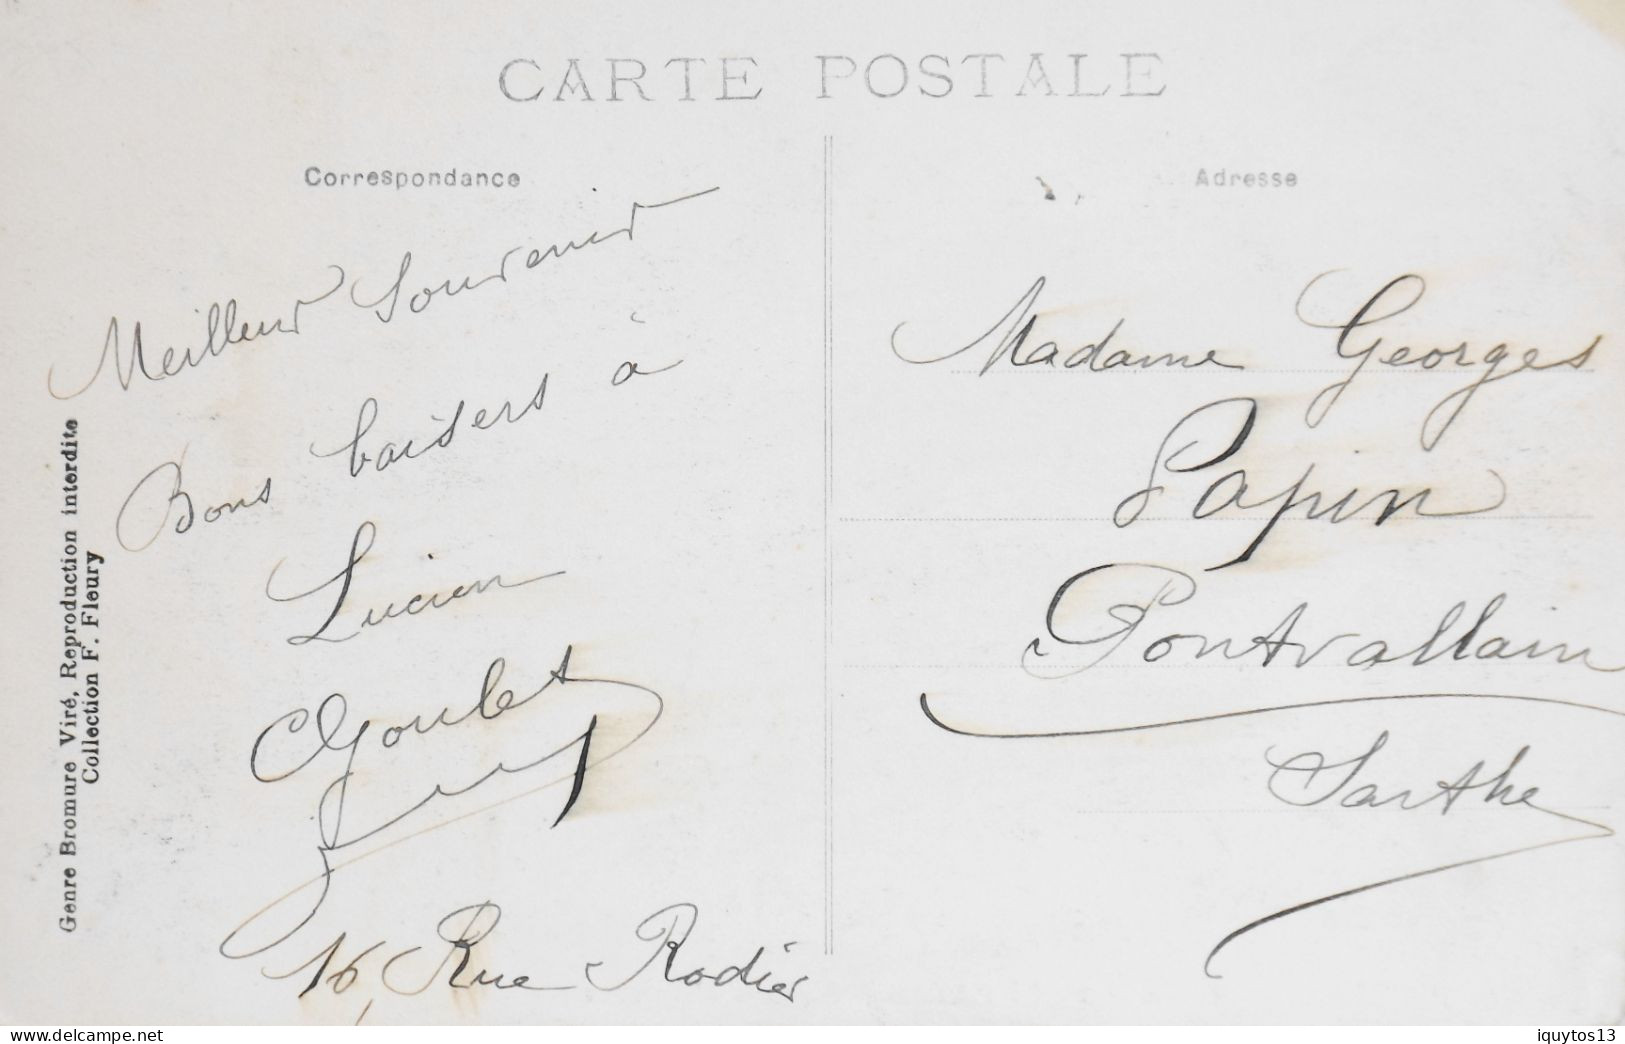 CARTE POSTALE
Correspondance
Meilleur Souvenir
Bons baisers à
Lucien
Goulet
16, Rue Rodier
Genre Bromure Viré, Reproduction interdite
Collection F. Fleury
Adresse
Madame Georges
Papin
Pontvallain
Sarthe
www.delcampe.net
iquytos13